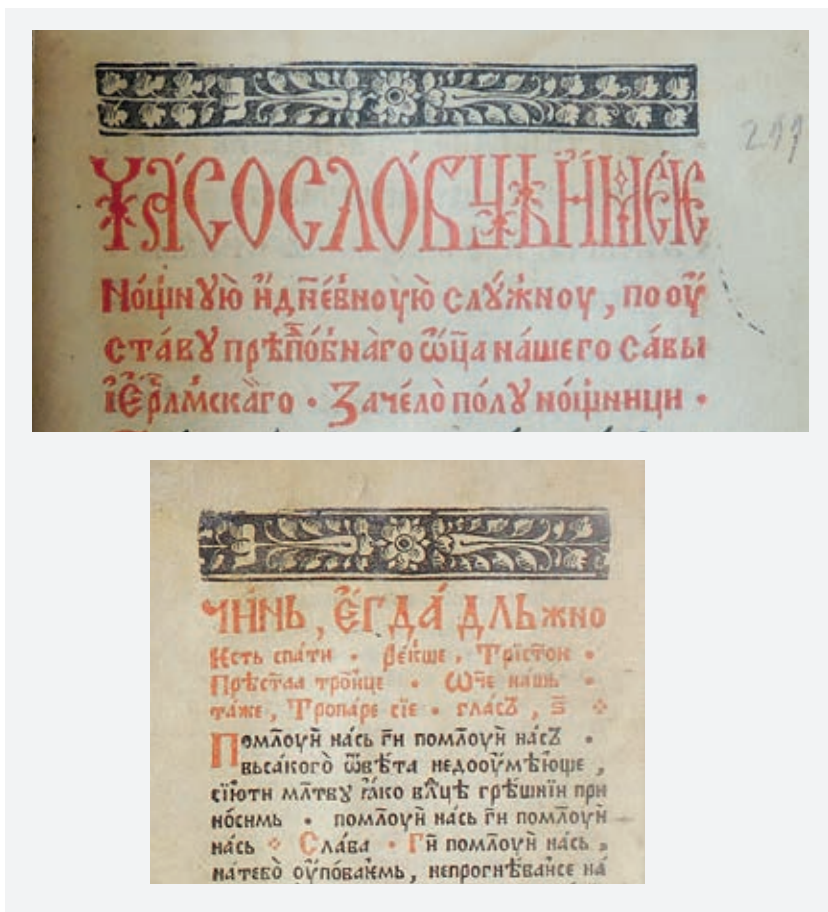 211
Часословь имѣѥи
Но́щнꙋю̀ и҆дн҃е́вноую̀ слꙋ́жноу, по оу҆
ста́вꙋ прѣпⷣо́бнаго ѡ҆ц҃а на́шего са́вы
і҆ер҃лⷭ҇мскаго · Заче́ло полꙋно́щници ·
Чи́нь, Е҆гда̀ дль́жно
Ѥсть спа́ти · ре́кше, Трист҃оѥ ·
Прѣст҃аа тро́ице · Ѿч҃е нашь ·
та́же, Тропа́ре сіе · гла́съ, ѕ҃
Помл҃оуй на́сь г҃и помл҃оуй на́съ ·
вьса́кого̀ ѿвѣ́та недооу҆мѣ́юще,
сію́ти мл҃твꙋ ꙗ҆́ко вл҃цѣ грѣ́шнїи при
но́симь · помл҃оуй на́сь г҃и помл҃оуй
на́сь Сла́ва · Г҃и помл҃оуй на́сь,
на́тебо̀ оу҆пова́ѥмь, непрогнѣ́ваисе на́